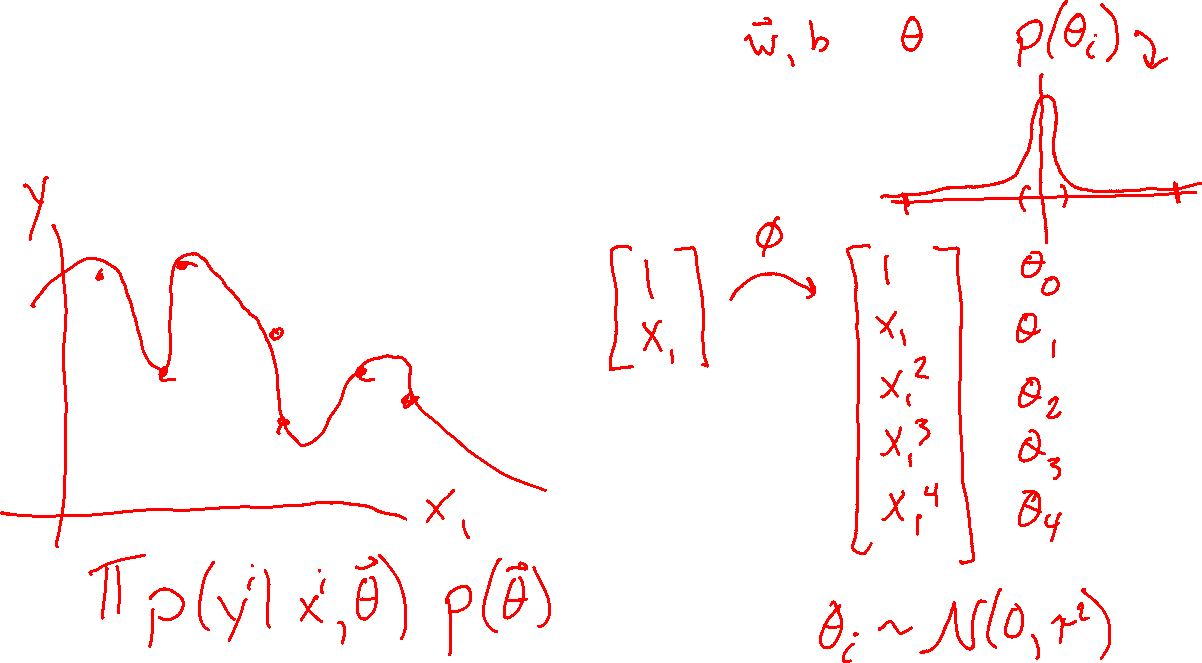 w⃗, b θ p(θᵢ)
y
ϕ
[1 x₁] [1 x₁ x₁² x₁³ x₁⁴]
θ₀
θ₁
θ₂
θ₃
θ₄
x₁
∏ p(yⁱ| xⁱ, θ⃗) p(θ⃗)
θᵢ ~ N(0, τ²)